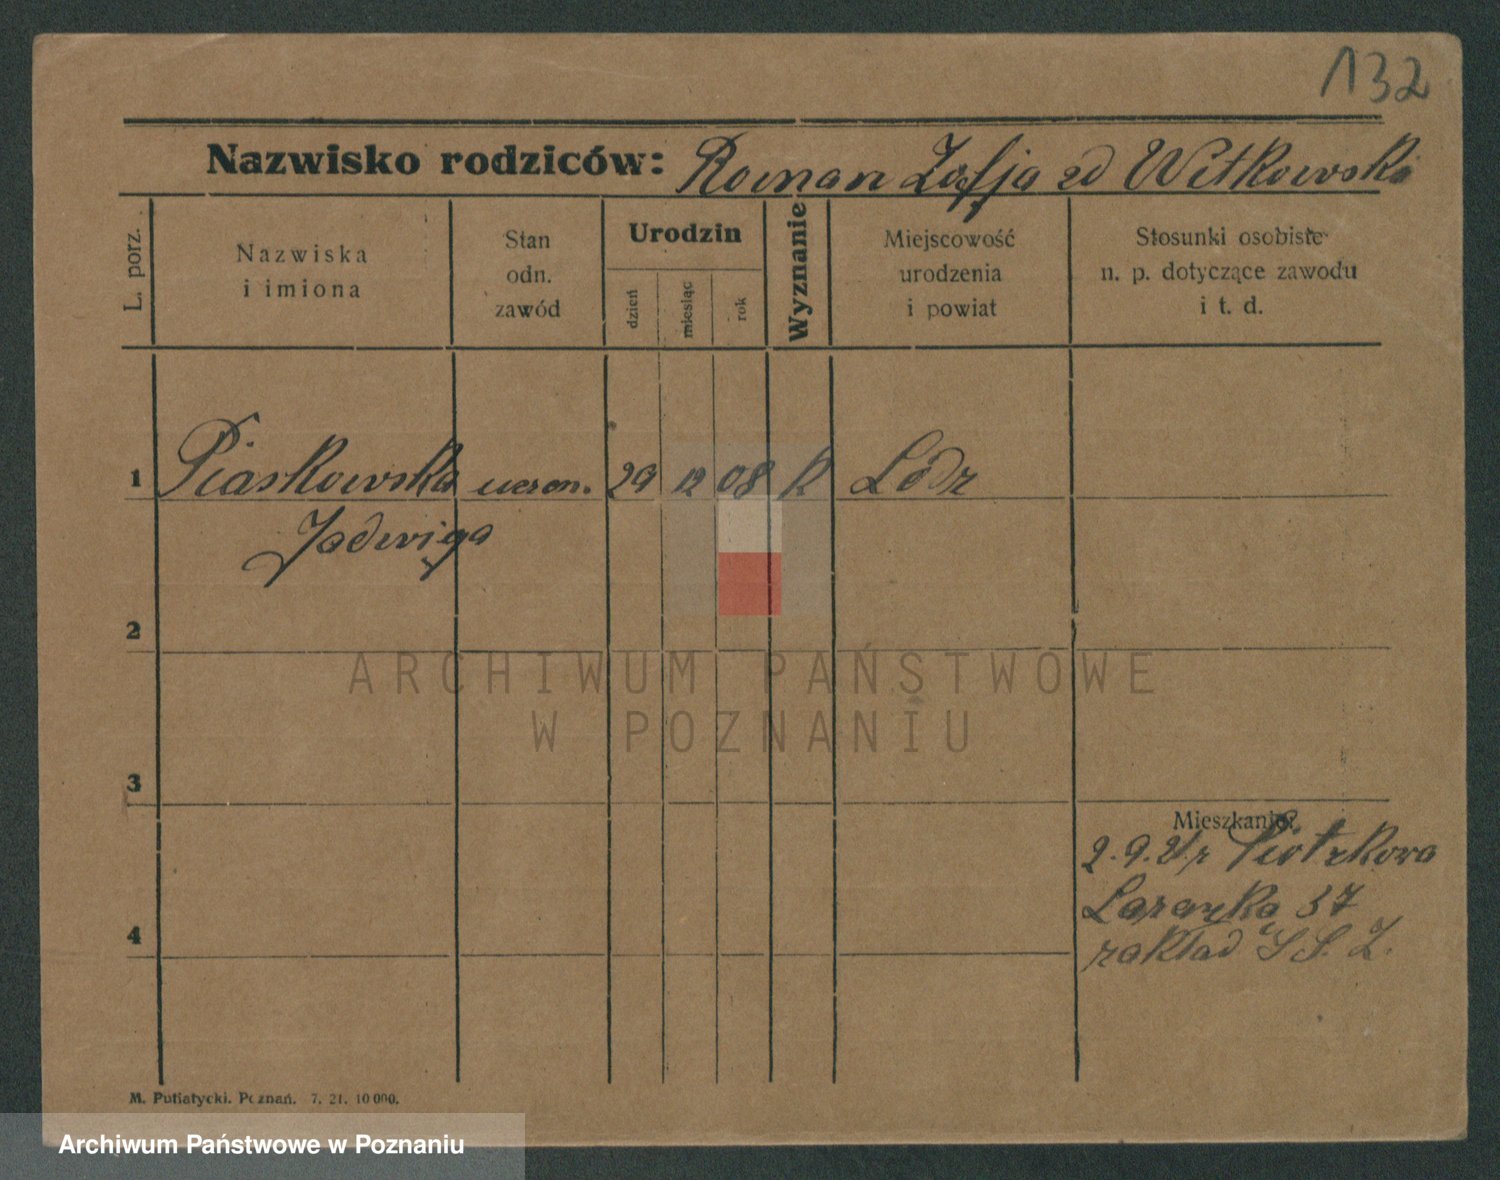 132
Nazwisko rodziców: Roman Zofja zd Witkowska
L. porz.
Nazwiska
i imiona
Stan
odn.
zawód
Urodzin
dzień
miesiąc
rok
Wyznanie
Miejscowość
urodzenia
i powiat
Stosunki osobiste
n. p. dotyczące zawodu
i t. d.
1 Piaskowska uczen. 29 12 08 k Łódz
Jadwiga
2
ARCHIWUM PAŃSTWOWE
W POZNANIU
3
Mieszkanie:
2.9.21.
4
zakład S. S. Z.
M. Putiatycki. Poznań. 7. 21. 10 000.
Archiwum Państwowe w Poznaniu